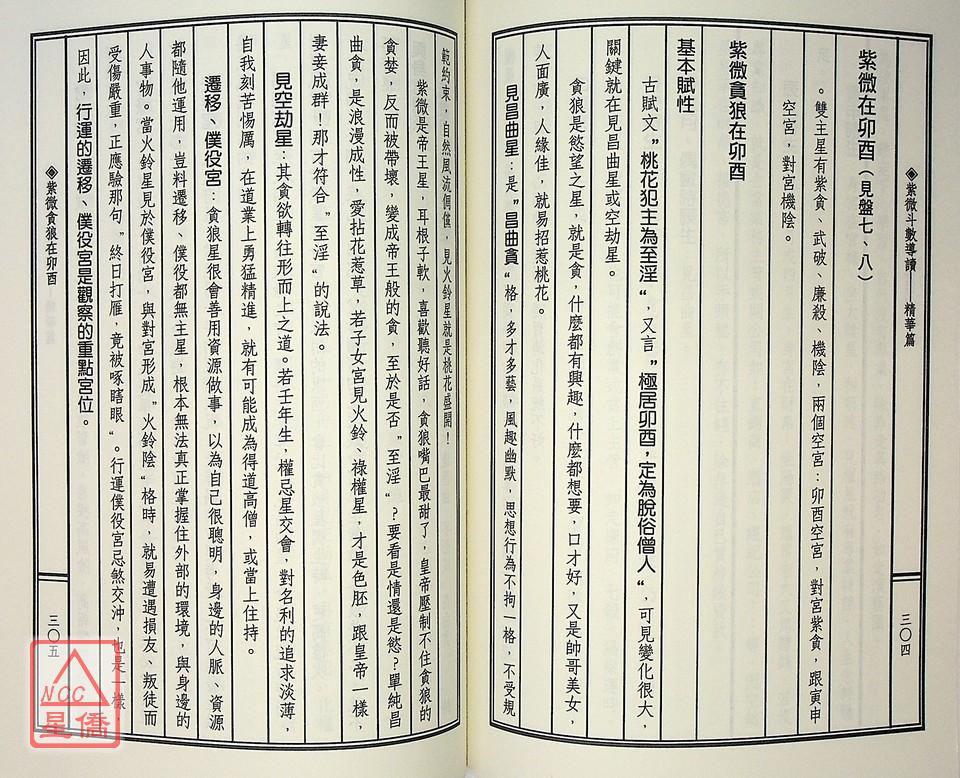 ◈紫微斗數導讀——精華篇
三〇四
紫微在卯酉（見盤七、八）
。雙主星有紫貪、武破、廉殺、機陰，兩個空宮：卯酉空宮，對宮紫貪，跟寅申
空宮，對宮機陰。
紫微貪狼在卯酉
基本賦性
古賦文〝桃花犯主為至淫〞，又言〝極居卯酉，定為脫俗僧人〞，可見變化很大，
關鍵就在見昌曲星或空劫星。
貪狼是慾望之星，就是貪，什麼都有興趣，什麼都想要，口才好，又是帥哥美女，
人面廣，人緣佳，就易招惹桃花。
見昌曲星：是〝昌曲貪〞格，多才多藝，風趣幽默，思想行為不拘一格，不受規
範約束，自然風流倜儻，見火鈴星就是桃花盛開！
紫微是帝王星，耳根子軟，喜歡聽好話，貪狼嘴巴最甜了，皇帝壓制不住貪狼的
貪婪，反而被帶壞，變成帝王般的貪，至於是否〝至淫〞？要看是情還是慾？單純昌
曲貪，是浪漫成性，愛拈花惹草，若子女宮見火鈴、祿權星，才是色胚，跟皇帝一樣，
妻妾成群！那才符合〝至淫〞的說法。
見空劫星：其貪欲轉往形而上之道。若壬年生，權忌星交會，對名利的追求淡薄，
自我刻苦惕厲，在道業上勇猛精進，就有可能成為得道高僧，或當上住持。
遷移、僕役宮：貪狼星很會善用資源做事，以為自己很聰明，身邊的人脈、資源
都隨他運用，豈料遷移、僕役都無主星，根本無法真正掌握住外部的環境，與身邊的
人事物。當火鈴星見於僕役宮，與對宮形成〝火鈴陰〞格時，就易遭遇損友、叛徒而
受傷嚴重，正應驗那句〝終日打雁，竟被啄瞎眼〞。行運僕役宮忌煞交沖，也是一樣，
因此，行運的遷移、僕役宮是觀察的重點宮位。
◈紫微貪狼在卯酉
三〇五
NCC
星僑